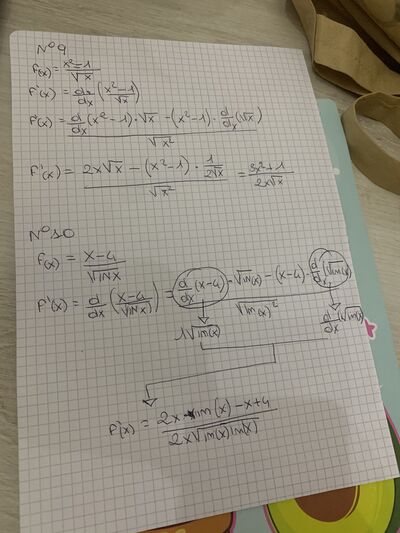 N°9
F(x) = x²-1 / √x
F'(x) = dx/dx (x²-1 / √x)
F'(x) = d/dx (x²-1) · √x - (x²-1) · d/dx (√x) / √x²
F'(x) = 2x√x - (x²-1) · 1/2√x / √x² = 3x²+1 / 2x√x
N°10
F(x) = x-4 / √INX
F'(x) = d/dx (x-4 / √INX) = d/dx (x-4) · √in(x) - (x-4) · d/dx (√in(x)) / √in(x)²
1√in(x) d/dx (√in(x))
F'(x) = 2x · in(x) - x+4 / 2x√in(x) in(x)